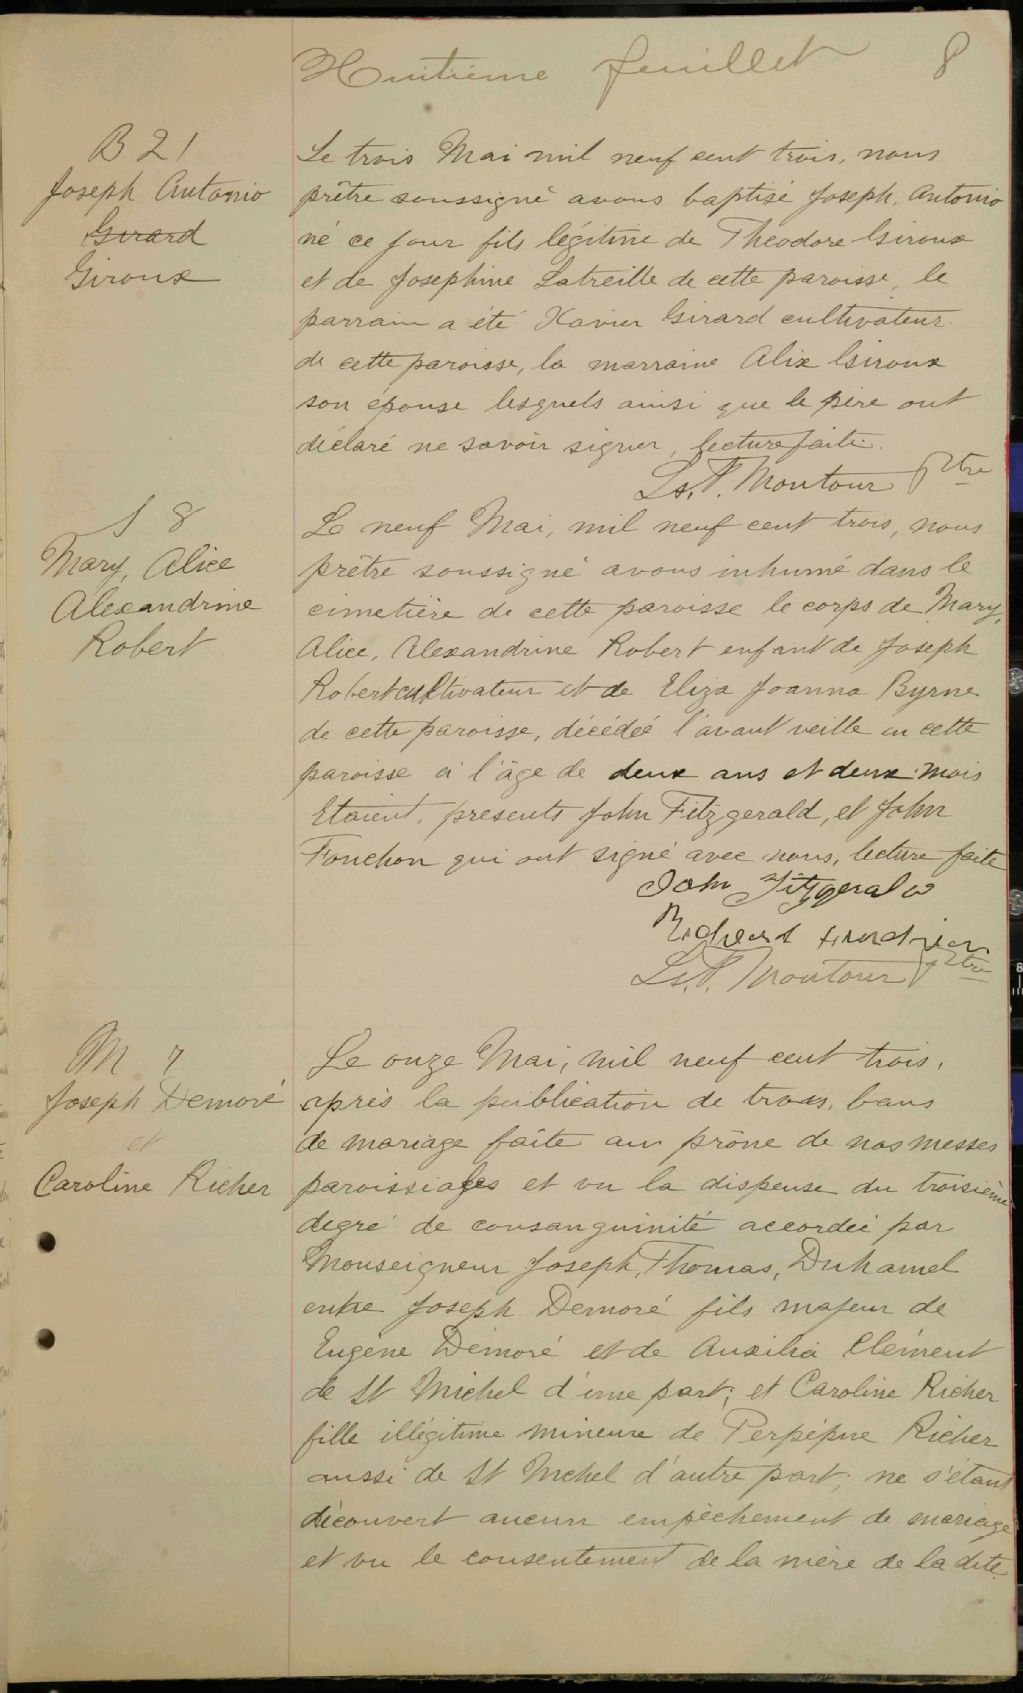 Huitième feuillet 8
B 21
Joseph Antonio
Girard
Giroux
Le trois Mai mil neuf cent trois, nous
prêtre soussigné avons baptisé Joseph, Antonio
né ce jour fils légitime de Théodore Giroux
et de Josephine Latreille de cette paroisse, le
parrain a été Xavier Girard cultivateur
de cette paroisse, la marraine Alix Giroux
son épouse lesquels ainsi que le père ont
déclaré ne savoir signer, lecture faite.
Ls. P. Moutour Ptre
S 8
Mary, Alice
Alexandrine
Robert
Le neuf Mai, mil neuf cent trois, nous
prêtre soussigné avons inhumé dans le
cimetière de cette paroisse le corps de Mary,
Alice, Alexandrine Robert enfant de Joseph
Robert cultivateur et de Eliza Joanna Byrne
de cette paroisse, décédée l'avant veille en cette
paroisse à l'âge de deux ans et deux mois
Etaient, presents John Fitzgerald, et John
Fouchon qui ont signé avec nous, lecture faite
John Fitzgerald
Ls. P. Moutour Ptre
M 7
Joseph Demoré
et
Caroline Richer
Le onze Mai, mil neuf cent trois,
après la publication de trois, bans
de mariage faite au prône de nos messes
paroissiales et vu la dispense du troisième
degré de consanguinité accordée par
Monseigneur Joseph, Thomas, Duhamel
entre Joseph Demoré fils majeur de
Eugène Démoré et de Auxilia Clément
de St Michel d'une part; et Caroline Richer
fille illégitime mineure de Perpépue Richer
aussi de St Michel d'autre part; ne s'étant
découvert aucun empêchement de mariage
et vu le consentement de la mère de la dite